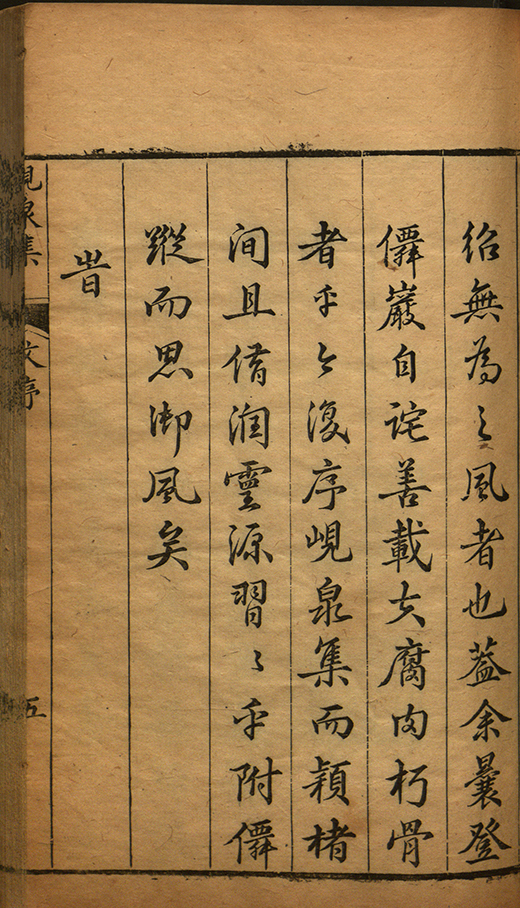 紹無為之風者也葢余曩登
僊巖自詫善載腐肉朽骨
者乎今復序峴泉集而穎楮
間且借潤靈源習〻乎附僊
蹤而思御風矣
旹
峴泉集
文序
五